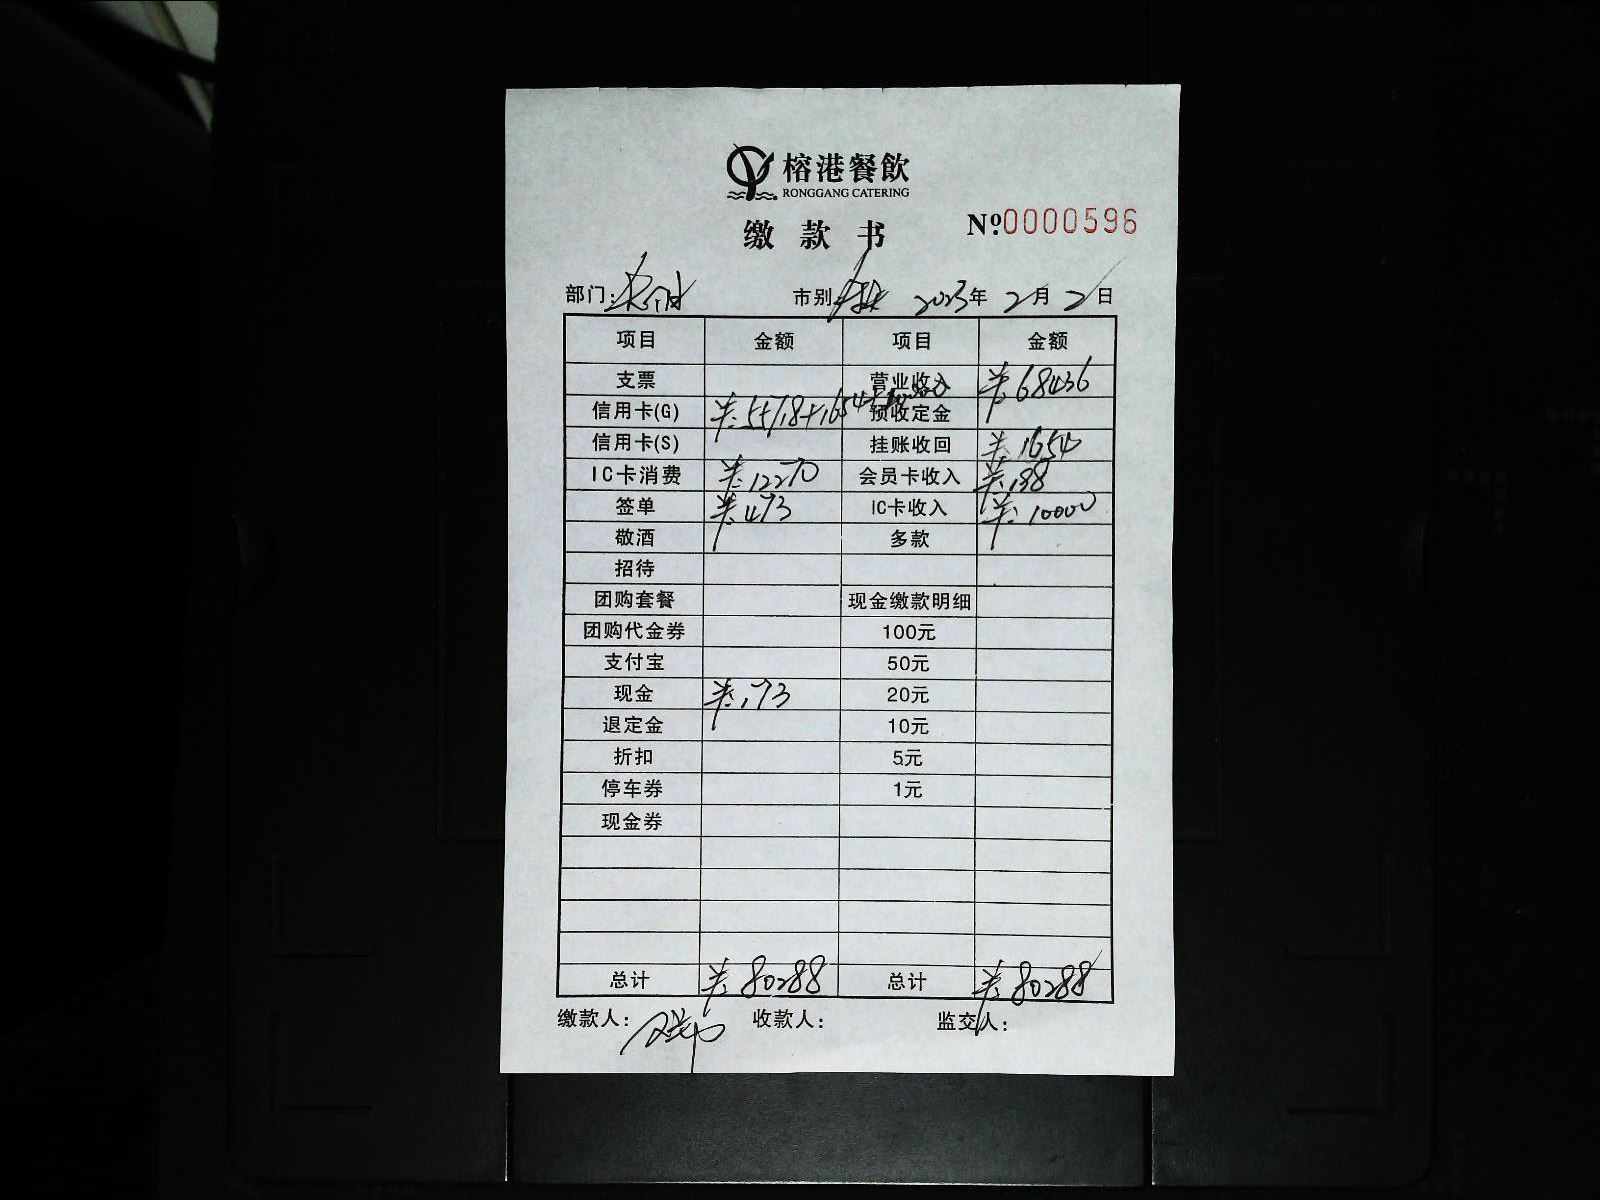 榕港餐飲
RONGGANG CATERING
缴款书
Nº:0000596
部门:
市别 2023年2月2日
项目 金额 项目 金额
支票 营业收入 ¥:68436
信用卡(G) ¥:55718+1654+10000 预收定金
信用卡(S) 挂账收回 ¥:1654
IC卡消费 ¥:12270 会员卡收入 ¥:198
签单 ¥:473 IC卡收入 ¥:10000
敬酒 多款
招待
团购套餐 现金缴款明细
团购代金券 100元
支付宝 50元
现金 ¥:173 20元
退定金 10元
折扣 5元
停车券 1元
现金券
总计 ¥:80288 总计 ¥:80288
缴款人: 收款人: 监交人: